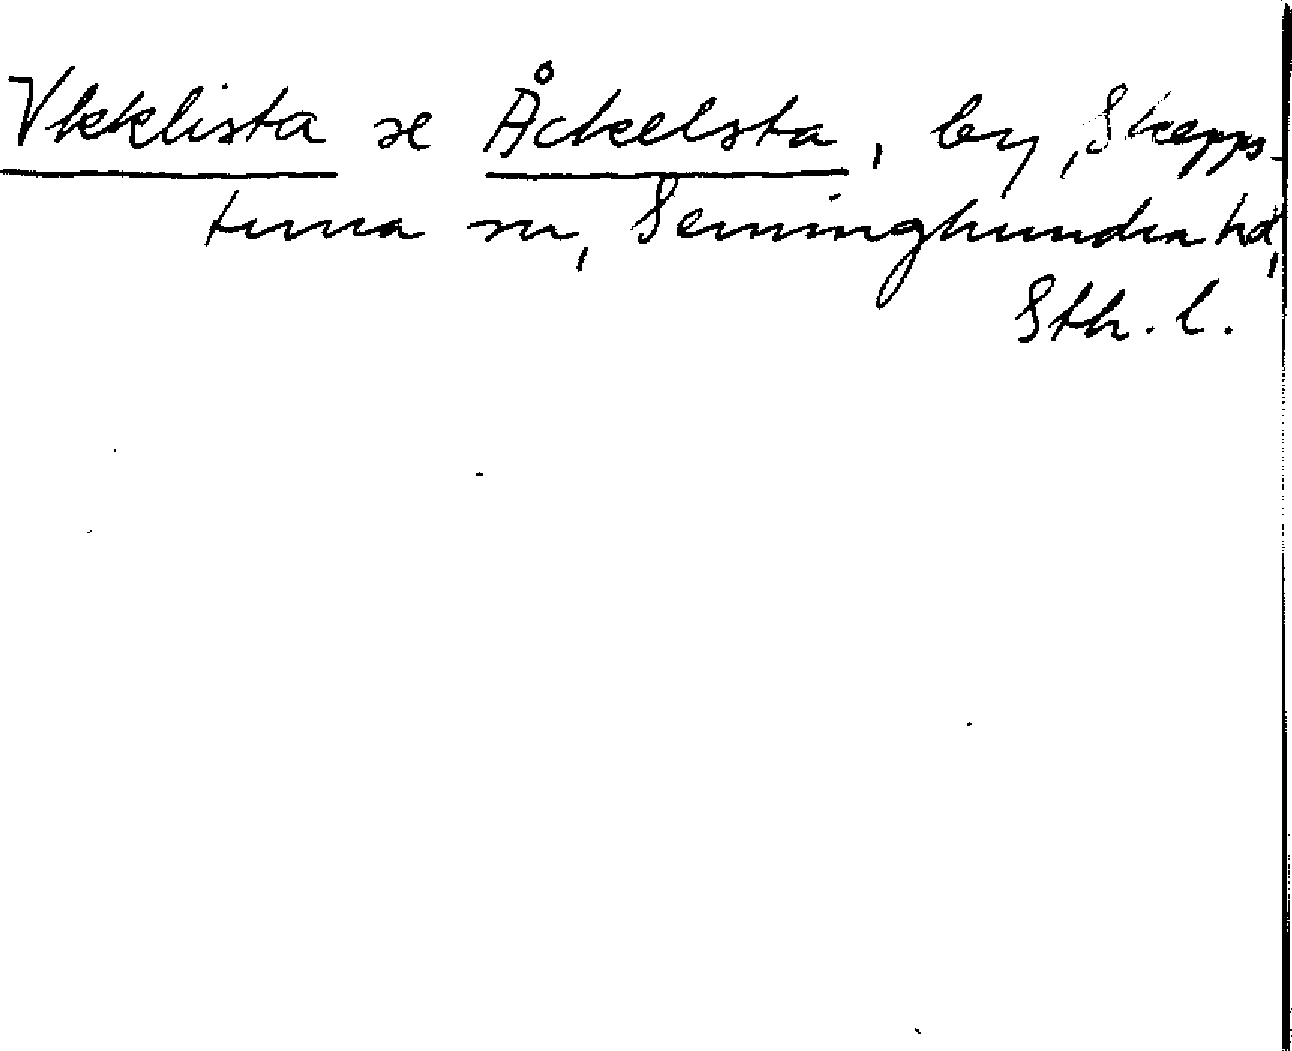 Vkklista se Åckelsta, by, Skepps-
tuna sn, Seminghundra hd,
Sth. l.